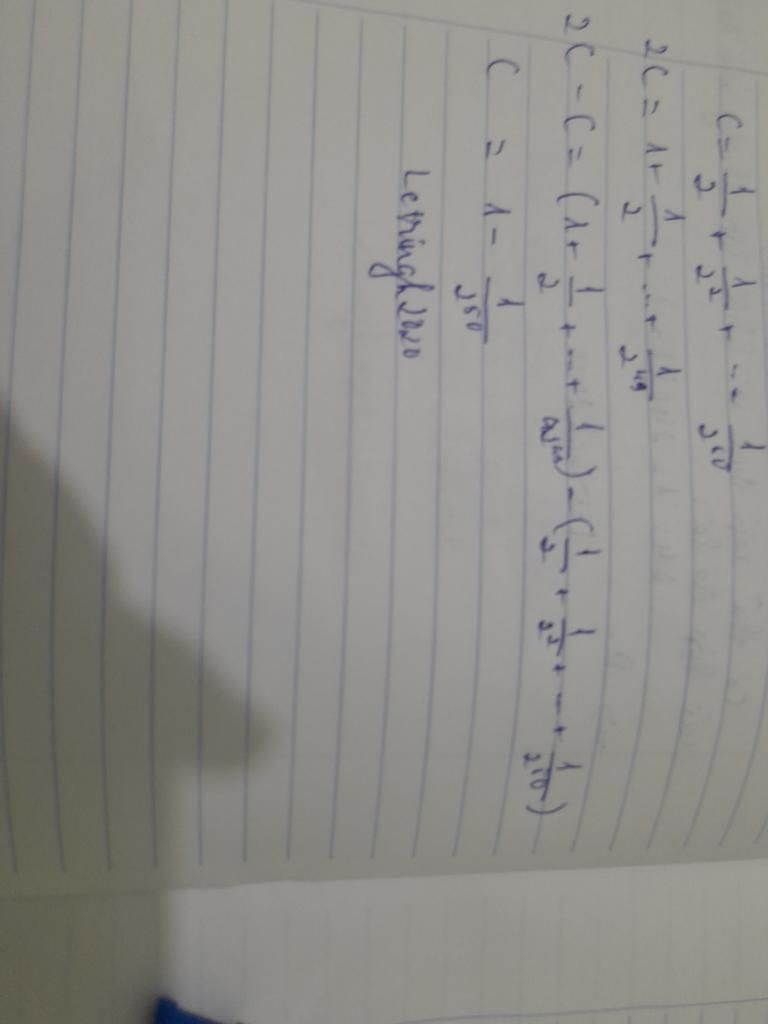 C = 1/2 + 1/2² + ... = 1/2⁵⁰
2C = 1 + 1/2 + ... + 1/2⁴⁹
2C - C = (1 + 1/2 + ... + 1/2⁴⁹) - (1/2 + 1/2² + ... + 1/2⁵⁰)
C = 1 - 1/2⁵⁰